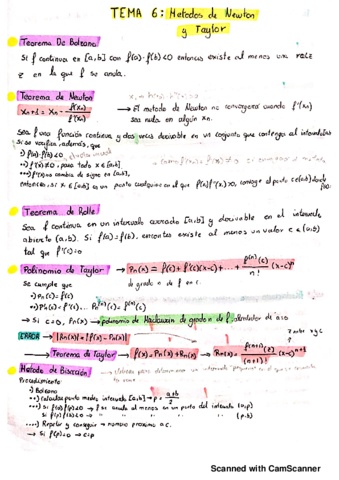 TEMA 6: Metodos de Newton
y Taylor
Teorema De Bolzano
Si f continua en [a,b] con f(a)·f(b)<0 entonces existe al menos una raiz
z en la que f se anula.
Teorema de Newton
Xn+1 = Xn - f(Xn)/f'(Xn) → El metodo de Newton no convergerá cuando f'(Xn)
sea nula en algún Xn.
Sea f una función continua y dos veces derivable en un conjunto que contenga al intervalo
Si se verifica, además, que
·) f(a)·f(b)<0
··) f'(x)≠0, para todo x ∈ [a,b]
···) f''(x) no cambia de signo en [a,b],
entonces, si x₁ ∈ [a,b] es un punto cualquiera en el que f(x₁)f''(x₁)>0, converge al punto c ∈ (a,b) donde
Teorema de Rolle
Sea f continua en un intervalo cerrado [a,b] y derivable en el intervalo
abierto (a,b). Si f(a)=f(b), entonces existe al menos un valor c ∈ (a,b)
tal que f'(c)=0
Polinomio de Taylor → Pn(x) = f(c) + f'(c)(x-c) + ... + f⁽ⁿ⁾(c)/n! (x-c)ⁿ
Se cumple que de grado n de f en c.
·) Pn(c) = f(c)
··) P'n(c) = f'(c)... Pn⁽ⁿ⁾(c) = f⁽ⁿ⁾(c)
→ Si c=0, Pn(x) → polinomio de Maclaurin de grado n de f, alrededor de x=0
ERROR → |Rn(x)| = |f(x) - Pn(x)|
z entre x y c
→ Teorema de Taylor → f(x) = Pn(x) + Rn(x) → Rn(x) = f⁽ⁿ⁺¹⁾(z)/(n+1)! (x-c)ⁿ⁺¹
Metodo de Bisección
Procedimiento:
·) Bolzano
··) calcular punto medio intervalo [a,b] → p = a+b/2
···) Si f(a)f(p)<0 → f se anula al menos en un punto del intervalo (a,p)
Si f(p)f(b)<0 → (p,b)
····) Repetir y conseguir → numero proximo a c.
→ Si f(p)=0 → c=p
Scanned with CamScanner